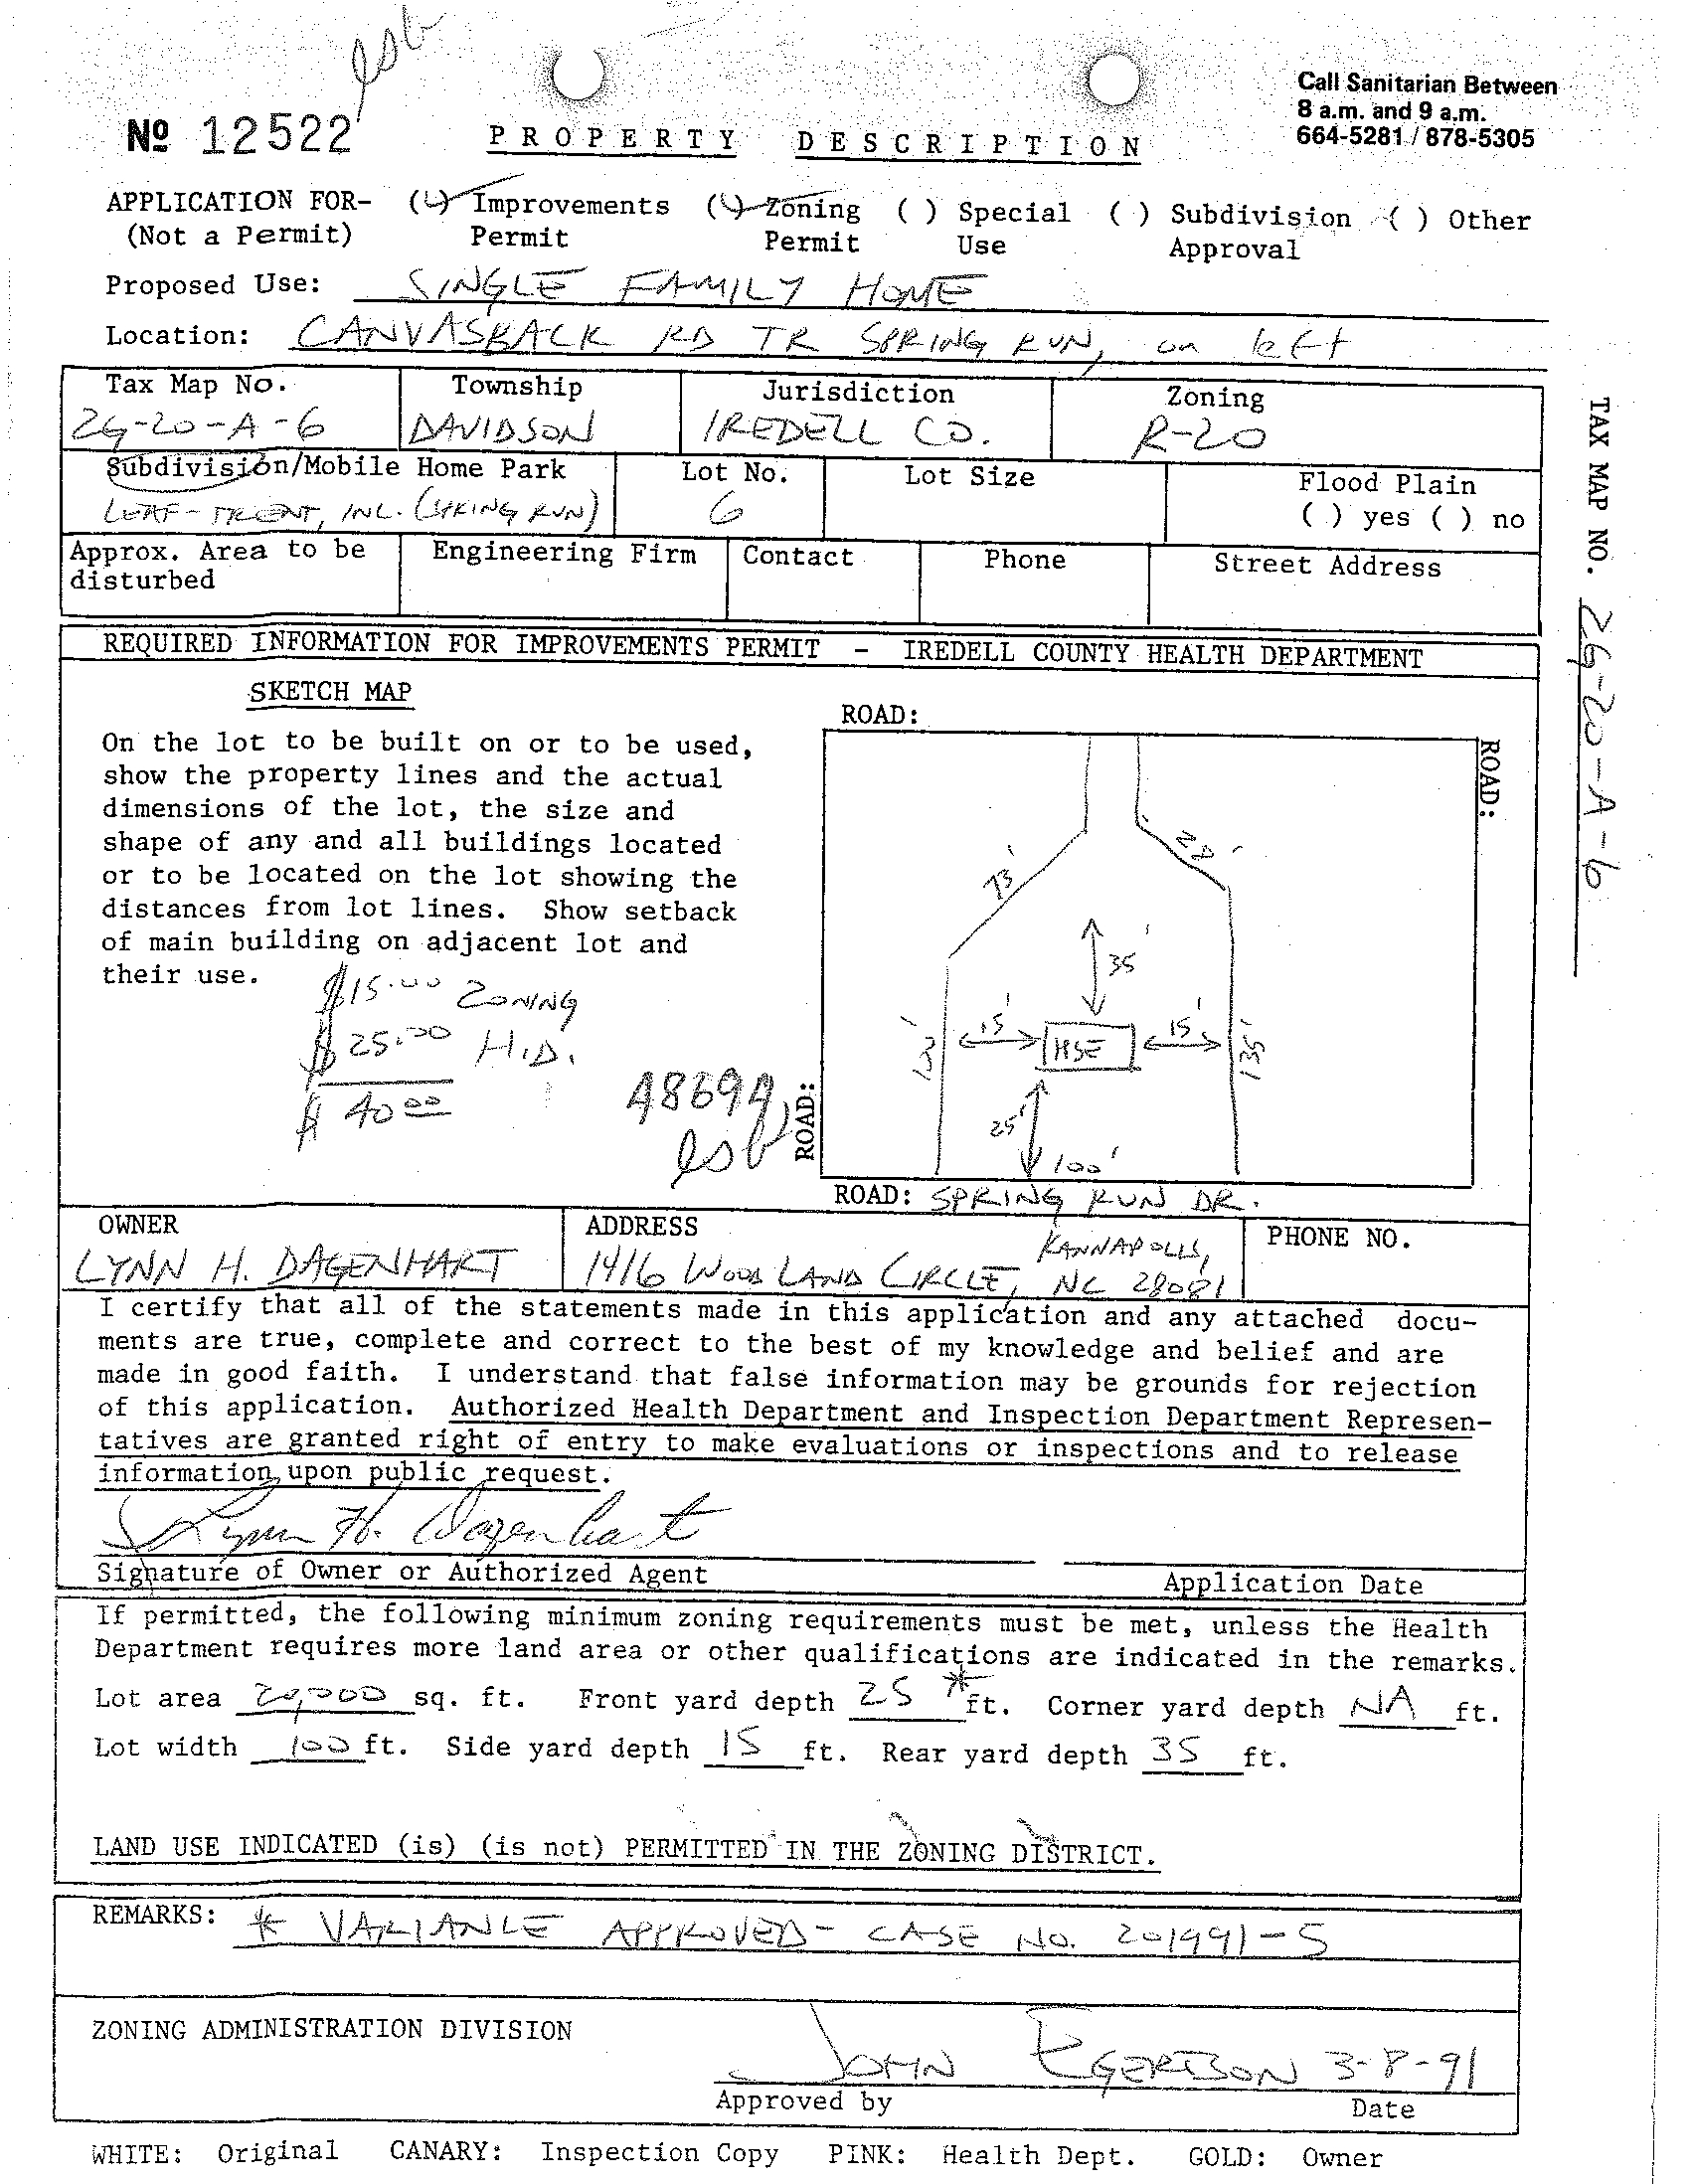 esb
Call Sanitarian Between
8 a.m. and 9 a.m.
664-5281 / 878-5305
Nº 12522
PROPERTY DESCRIPTION
APPLICATION FOR- (✓) Improvements (✓) Zoning ( ) Special ( ) Subdivision ( ) Other
(Not a Permit) Permit Permit Use Approval
Proposed Use: SINGLE FAMILY HOME
Location: CANVASBACK RD TR SPRING RUN, on left
Tax Map No. Township Jurisdiction Zoning
2G-20-A-6 DAVIDSON IREDELL CO. R-20
Subdivision/Mobile Home Park Lot No. Lot Size Flood Plain
INC. (SPRING RUN) 6 ( ) yes ( ) no
Approx. Area to be Engineering Firm Contact Phone Street Address
disturbed
TAX MAP NO. 2G-20-A-6
REQUIRED INFORMATION FOR IMPROVEMENTS PERMIT - IREDELL COUNTY HEALTH DEPARTMENT
SKETCH MAP
On the lot to be built on or to be used,
show the property lines and the actual
dimensions of the lot, the size and
shape of any and all buildings located
or to be located on the lot showing the
distances from lot lines. Show setback
of main building on adjacent lot and
their use.
$15.00 ZONING
$25.00 H.D.
$ 40 00
48694
esb
ROAD:
ROAD:
73'
35'
15' HSE 15'
135'
25'
100'
ROAD:
ROAD: SPRING RUN DR.
OWNER ADDRESS PHONE NO.
LYNN H. DAGENHART 1416 WOODLAND CIRCLE, KANNAPOLIS, NC 28081
I certify that all of the statements made in this application and any attached docu-
ments are true, complete and correct to the best of my knowledge and belief and are
made in good faith. I understand that false information may be grounds for rejection
of this application. Authorized Health Department and Inspection Department Represen-
tatives are granted right of entry to make evaluations or inspections and to release
information upon public request.
Lynn H. Dagenhart
Signature of Owner or Authorized Agent Application Date
If permitted, the following minimum zoning requirements must be met, unless the Health
Department requires more land area or other qualifications are indicated in the remarks.
Lot area 20,000 sq. ft. Front yard depth 25 * ft. Corner yard depth NA ft.
Lot width 100 ft. Side yard depth 15 ft. Rear yard depth 35 ft.
LAND USE INDICATED (is) (is not) PERMITTED IN THE ZONING DISTRICT.
REMARKS: * VARIANCE APPROVED - CASE NO. 201991-5
ZONING ADMINISTRATION DIVISION
JOHN EGERTSON 3-8-91
Approved by Date
WHITE: Original CANARY: Inspection Copy PINK: Health Dept. GOLD: Owner